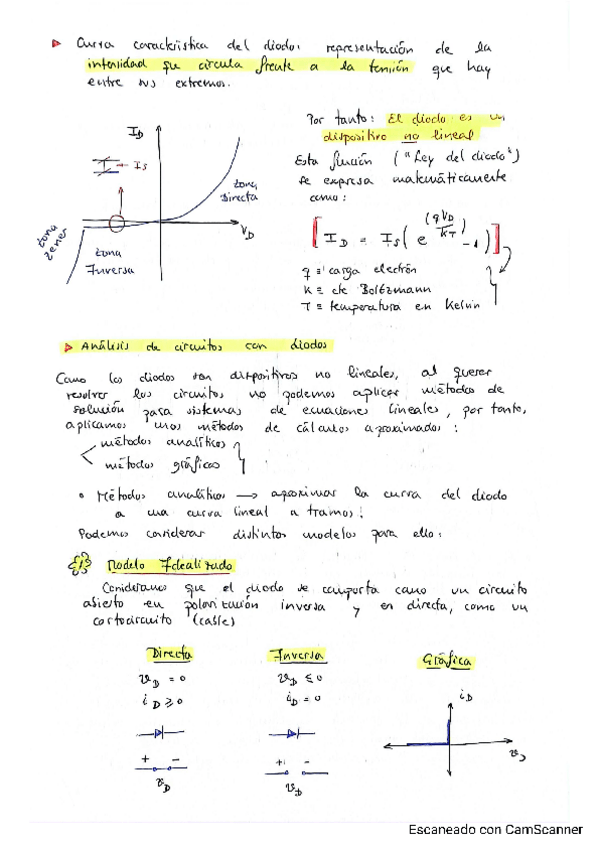 ▷ Curva característica del diodo: representación de la
intensidad que circula frente a la tensión que hay
entre sus extremos.
I_D
- I_S
zona
Directa
V_D
zona
zener
zona
Inversa
Por tanto: El diodo es un
dispositivo no lineal
Esta función ("Ley del diodo")
se expresa matemáticamente
como:
[I_D = I_S (e^(qV_D/KT) - 1)]
q ≡ carga electrón
K ≡ cte Boltzmann
T ≡ temperatura en Kelvin
▷ Análisis de circuitos con diodos
Como los diodos son dispositivos no lineales, al querer
resolver los circuitos no podemos aplicar métodos de
solución para sistemas de ecuaciones lineales, por tanto,
aplicamos unos métodos de cálculos aproximados:
métodos analíticos
métodos gráficos
• Métodos analíticos → aproximar la curva del diodo
a una curva lineal a tramos!
Podemos considerar distintos modelos para ello:
{1} Modelo Idealizado
Consideramos que el diodo se comporta como un circuito
abierto en polarización inversa y en directa, como un
cortocircuito (cable)
Directa
v_D = 0
i_D ≥ 0
+ -
v_D
Inversa
v_D ≤ 0
i_D = 0
+ -
v_D
Gráfica
i_D
v_D
Escaneado con CamScanner